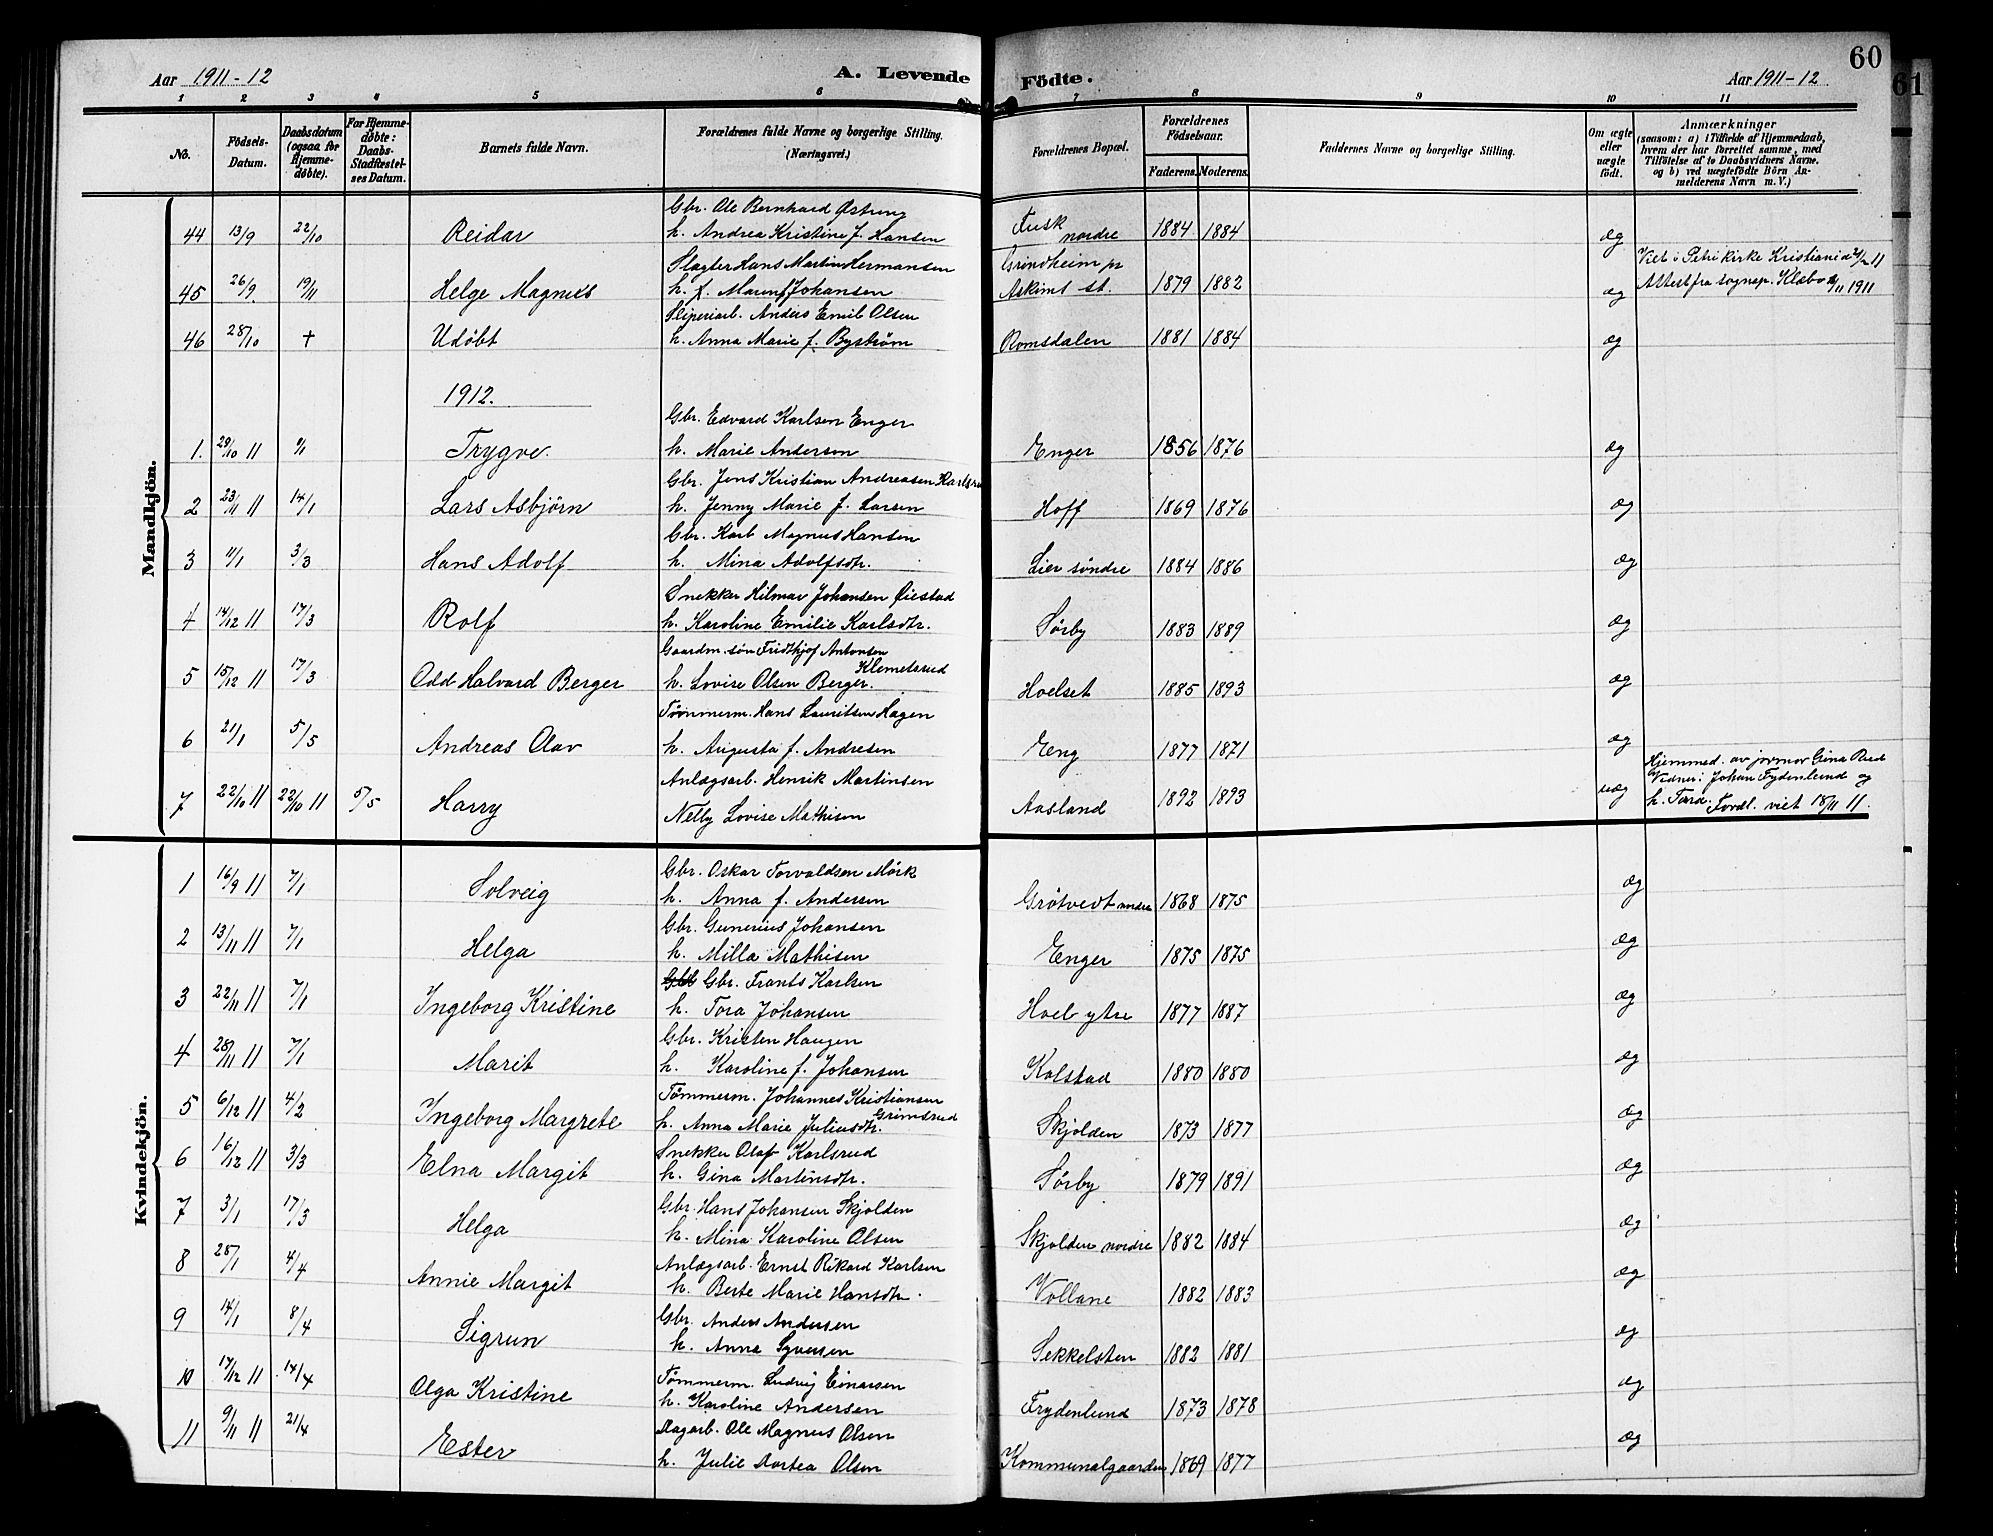 60
61
Aar 1911-12
A. Levende Födte.
Aar 1911-12
1 2 3 4 5 6 7 8 9 10 11
No.
Födsels-Datum.
Daabsdatum (ogsaa for Hjemmedöbte).
For Hjemmedöbte: Daabs-Stadfestelses Datum.
Barnets fulde Navn.
Forældrenes fulde Navne og borgerlige Stilling. (Næringsvei.)
Forældrenes Bopæl.
Forældrenes Födselsaar.
Faderens. Moderens.
Faddernes Navne og borgerlige Stilling.
Om ægte eller uægte födt.
Anmærkninger (saasom: a) i Tilfælde af Hjemmedaab, hvem der har forrettet samme, med Tilföielse af to Daabsvidners Navne. og b) ved uægtefödte Börn Anmelderens Navn m. V.)
Mandkjön.
Gbr. Ole Bernhard Østreng
44 13/9 22/10 Reidar h. Andrea Kristine f. Hansen Fusk nordre 1884 1884 æg
Slagter Hans Martin Hermansen
45 26/9 19/11 Helge Magnus h. f. Maren Johansen Grindheim pr Askims st. 1879 1882 æg
Viet i Petri kirke Kristiania 11
Attest fra sognep. Klæbo 1911
Sliperiarb. Anders Emil Olsen
46 28/10 † Udøbt h. Anna Marie f. Byström Romsdalen 1881 1884 æg
1912.
Gbr. Edvard Karlsen Enger
1. 29/10 11 1/1 Trygve h. Marie Andersen Enger 1856 1876 æg
Gbr. Jens Kristian Andreasen Karlsrud
2 23/11 11 14/1 Lars Asbjørn h. Jenny Marie f. Larsen Hoff 1869 1876 æg
Gbr. Karl Magnus Hansen
3 11/1 3/3 Hans Adolf h. Mina Adolfsdtr. Lier søndre 1884 1886 æg
Snekker Hilmar Johansen Øiestad
4 14/12 11 17/3 Rolf h. Karoline Emilie Karlsdtr. Sørby 1883 1889 æg
Gaardm. søn Fridthjof Antonsen Klemetsrud
5 15/12 11 17/3 Odd Halvard Berger h. Lovise Olsen Berger. Hoelset 1885 1893 æg
Tømmerm. Hans Lauritsen Hagen
6 21/1 5/5 Andreas Olav h. Augusta f. Andresen Eng 1877 1871 æg
Anlægsarb. Henrik Martinsen
7 22/10 11 22/10 11 5/5 Harry Nelly Lovise Mathisen Aasland 1892 1893 uæg
Hjemmed. av jormor Gina Rud
Vidner: Johan Frydenlund og
h. Tora. Foræl. viet 18/11 11.
Kvindekjön.
Gbr. Oskar Torvaldsen Mørk
1 16/9 11 7/1 Solveig h. Anna f. Andersen Grøtvedt nordre 1868 1875 æg
Gbr. Gunerius Johansen
2 13/11 11 7/1 Helga h. Milla Mathisen Enger 1875 1875 æg
Gbr. Frants Karlsen
3 22/11 11 7/1 Ingeborg Kristine h. Tora Johansen Hoel ytre 1877 1887 æg
Gbr. Kristen Haugen
4 28/11 11 7/1 Marit h. Karoline f. Johansen Kolstad 1880 1880 æg
Tømmerm. Johannes Kristiansen Grimsrud
5 6/12 11 4/2 Ingeborg Margrete h. Anna Marie Juliusdtr. Skjolden 1873 1877 æg
Snekker Olaf Karlsrud
6 16/12 11 3/3 Elna Margit h. Gina Martinsdtr. Sørby 1879 1891 æg
Gbr. Hans Johansen Skjolden
7 3/1 17/3 Helga h. Mina Karoline Olsen Skjolden nordre 1882 1884 æg
Anlægsarb. Ernst Rikard Karlsen
8 28/1 4/4 Annie Margit h. Berte Marie Hansdtr. Vollane 1882 1883 æg
Gbr. Anders Andersen
9 14/1 8/4 Sigrun h. Anna Syversen Sekkelsten 1882 1881 æg
Tømmerm. Ludvig Einarsen
10 17/12 11 14/4 Olga Kristine h. Karoline Andersen Frydenlund 1873 1878 æg
Dagarb. Ole Magnus Olsen
11 9/11 11 21/4 Ester h. Julie Dortea Olsen Kommunalgaarden 1869 1877 æg